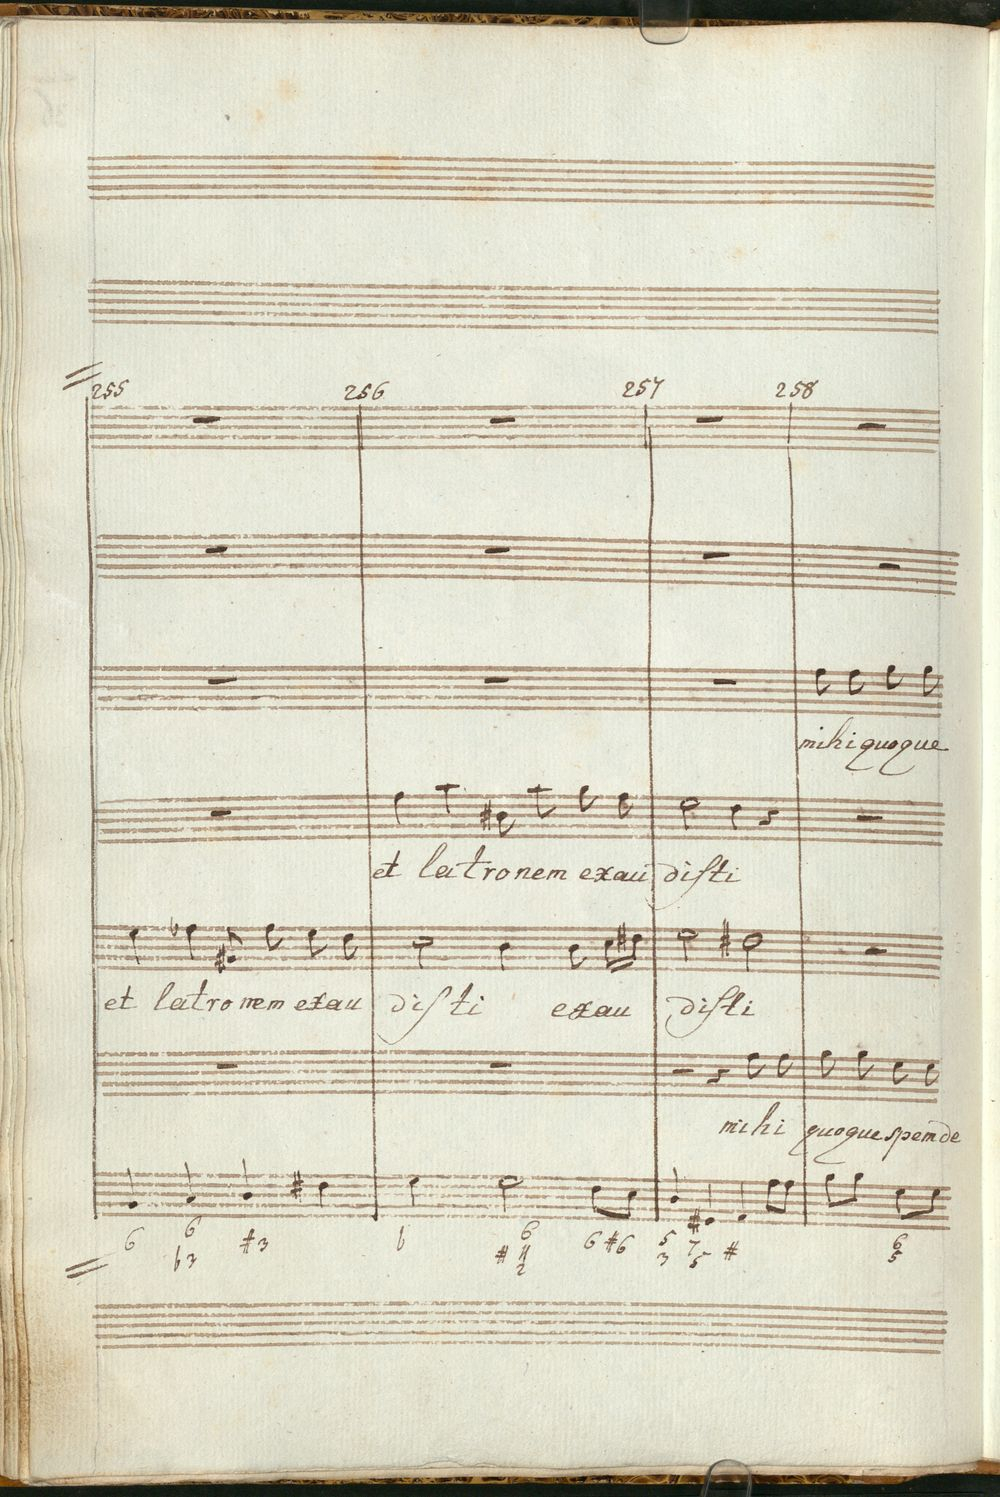 255 256 257 258
mihi quoque
et latronem exau disti
et latronem exau disti exau disti
mihi quoque spem de
6 6 #3 b 6 6 #6 5 7 # 6
b3 # 4 3 5 5
2